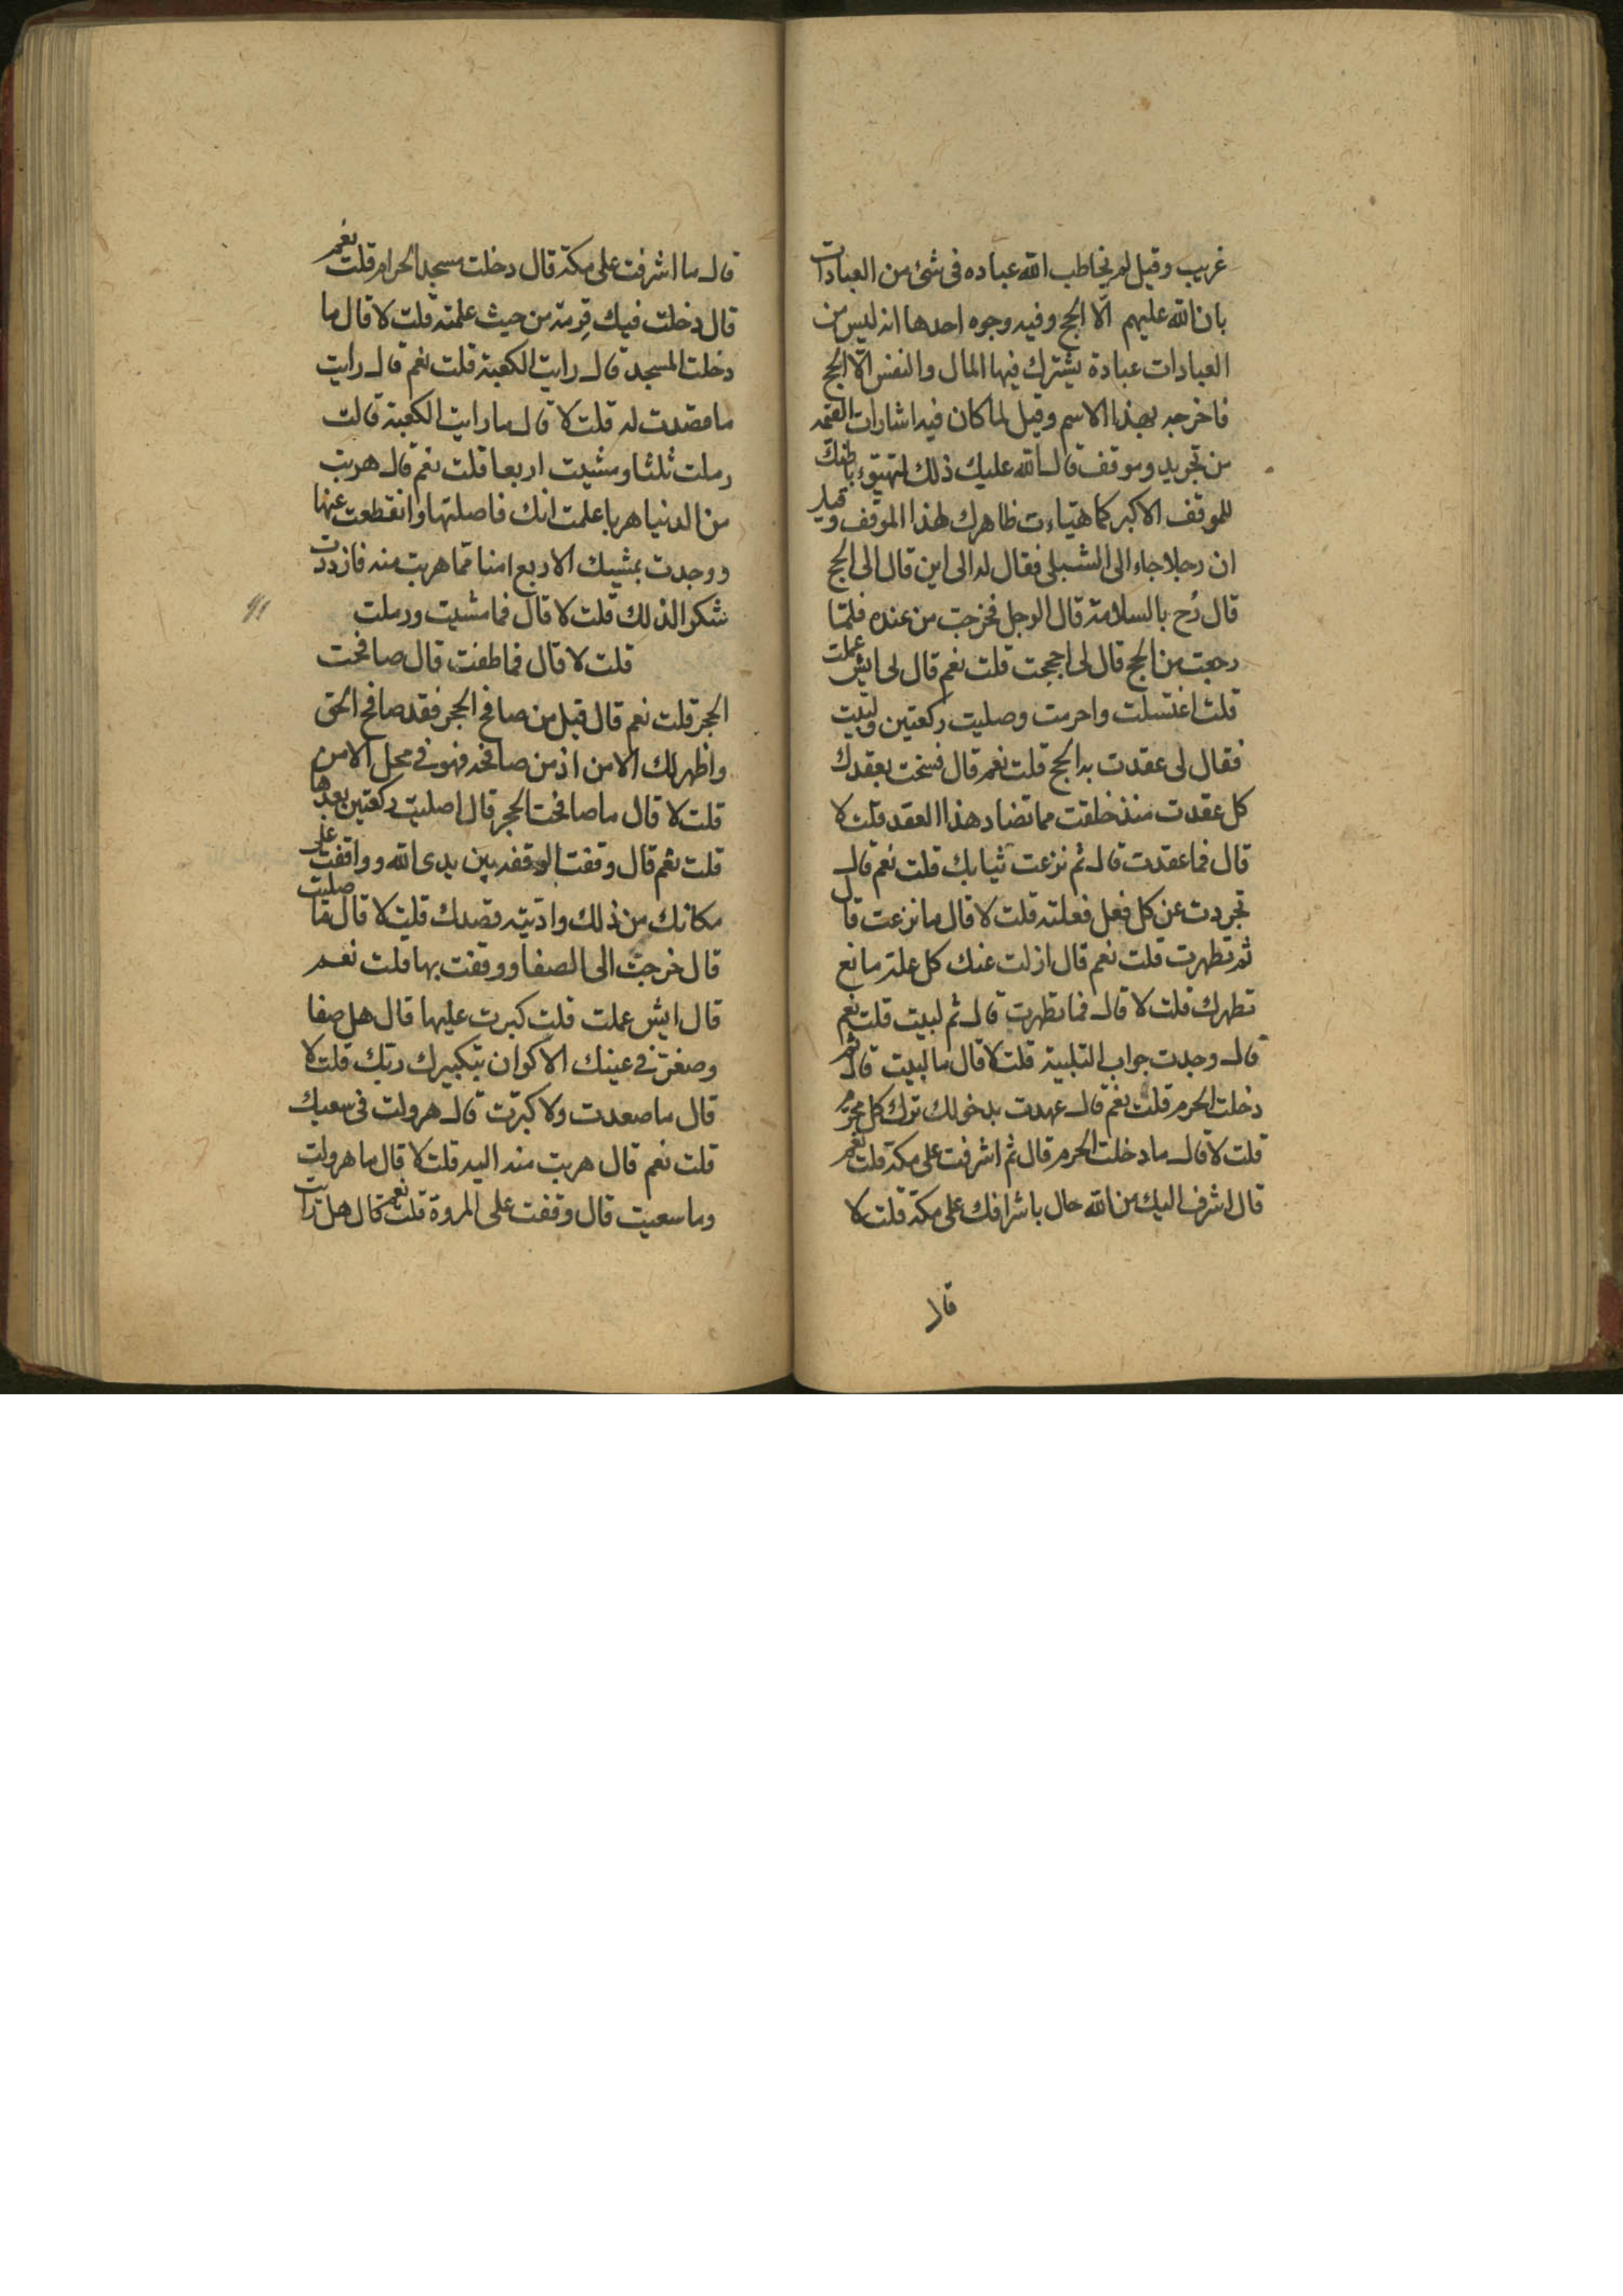 غريب وقيل لم يخاطب الله عباده في شئ من العبادات
بان لله عليهم الّا الحج وفيه وجوه احدها انه ليس من
العبادات عبادة يشترك فيها المال والنفس الّا الحج
فاخرجه بهذا الاسم وقيل لما كان فيه اشارات القيمه
من تجريد وموقف قال لله عليك ذلك لتهيّؤ باطنك
للموقف الاكبر كما هيّاءت ظاهرك لهذا الموقف وقيل
ان رجلا جاء الى الشبلى فقال له الى اين قال الى الحج
قال رُح بالسلامة قال الرجل فخرجت من عنده فلمّا
رجعت من الحج قال لى احججت قلت نعم قال لى ايش عملت
قلت اغتسلت واحرمت وصليت ركعتين ولبّيت
فقال لى عقدت به الحج قلت نعم قال فسخت بعقدك
كل عقدت منذ خلقت مما تضاد هذا العقد قلت لا
قال فما عقدت قال ثم نزعت ثيابك قلت نعم قال
تجردت عن كل فعل فعلته قلت لا قال ما نزعت قال
ثم تطهرت قلت نعم قال ازلت عنك كل علة مانع
تطهرك قلت لا قال فما تطهرت قال ثم لبيت قلت نعم
قال وجدت جواب التلبية قلت لا قال ما لبيت قال ثم
دخلت الحرم قلت نعم قال عهدت بدخولك ترك كل محرّم
قلت لا قال ما دخلت الحرم قال ثم اشرفت على مكة قلت نعم
قال اشرف اليك من الله حال باشرافك على مكة قلت لا
قال
قال ما اشرفت على مكة قال دخلت مسجد الحرام قلت نعم
قال دخلت فيك قربته من حيث علمته قلت لا قال ما
دخلت المسجد قال رايت الكعبة قلت نعم قال رايت
ما قصدت له قلت لا قال ما رايت الكعبة قالت
رملت ثلثا ومشيت اربعا قلت نعم قال هربت
من الدنيا هربا علمت انك فاصلتها وانقطعت عنها
ووجدت بمشيك الاربع امنا ممّا هربت منه فازددت
شكرا لذلك قلت لا قال فما مشيت ورملت
قلت لا قال فما طفت قال صافحت
الحجر قلت نعم قال قيل من صافح الحجر فقد صافح الحق
واظهر لك الامن اذ من صافحه فهو في محل الامن
قلت لا قال ما صافحت الحجر قال اصليت ركعتين بعدها
قلت نعم قال وقفت الوقفه بين يدى الله وواقفت على
مكانك من ذلك وادّيته قصدك قلت لا قال ما صليت
قال خرجت الى الصفا ووقفت بها قلت نعم
قال ايش عملت قلت كبرت عليها قال هل صفا
وصغرت في عينك الاكوان بتكبيرك ربّك قلت لا
قال ما صعدت ولا كبّرت قال هرولت في سعيك
قلت نعم قال هربت منه اليه قلت لا قال ما هرولت
وما سعيت قال وقفت على المروة قلت نعم قال هل رايت